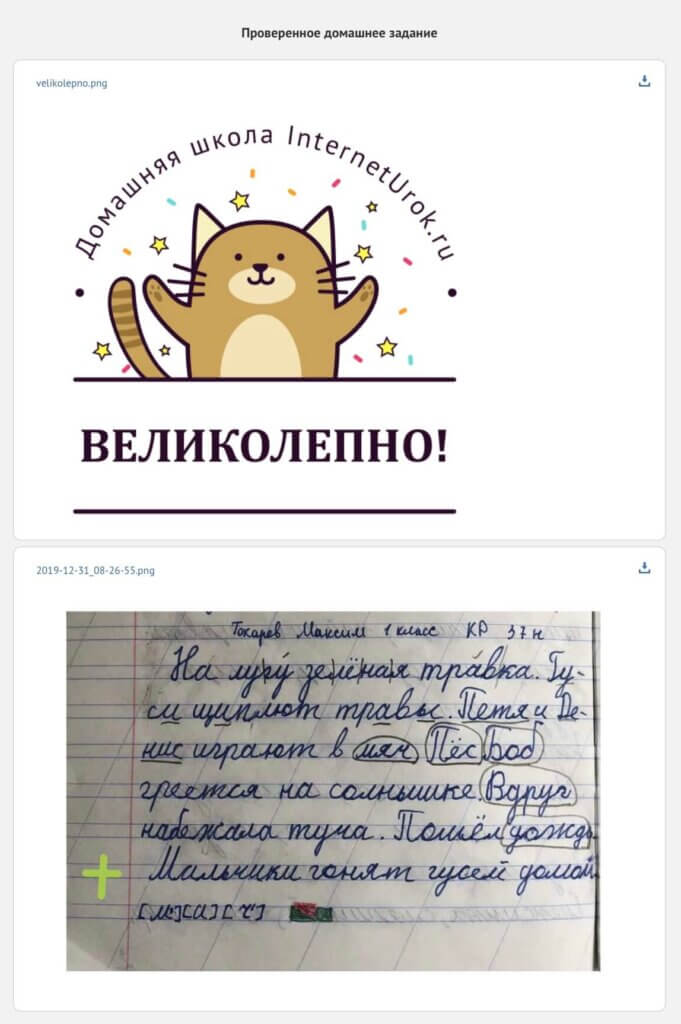 Проверенное домашнее задание
velikolepno.png
Домашняя школа InternetUrok.ru
ВЕЛИКОЛЕПНО!
2019-12-31_08-26-55.png
Токарев Максим 1 класс КР 37 н
На лугу́ зелёная тра́вка. Гу-
си щиплют травы. Петя и Де-
нис играют в мяч Пёс Боб
греется на солнышке. Вдруг
набежала туча. Пошёл дождь.
Мальчики гонят гусей домой.
[м'][а][ч']